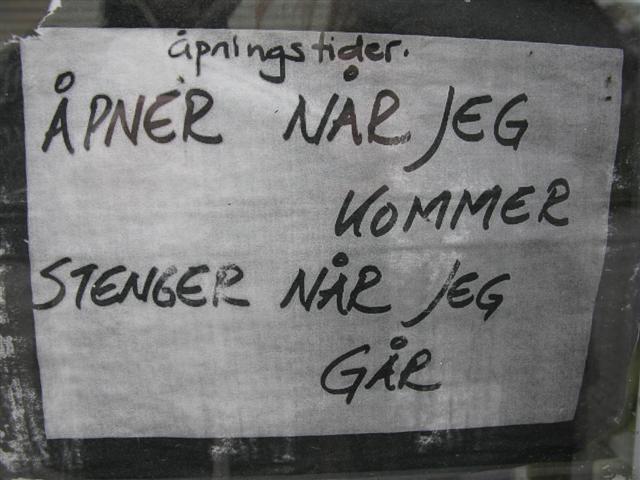 åpningstider.
ÅPNER NÅR JEG
KOMMER
STENGER NÅR JEG
GÅR